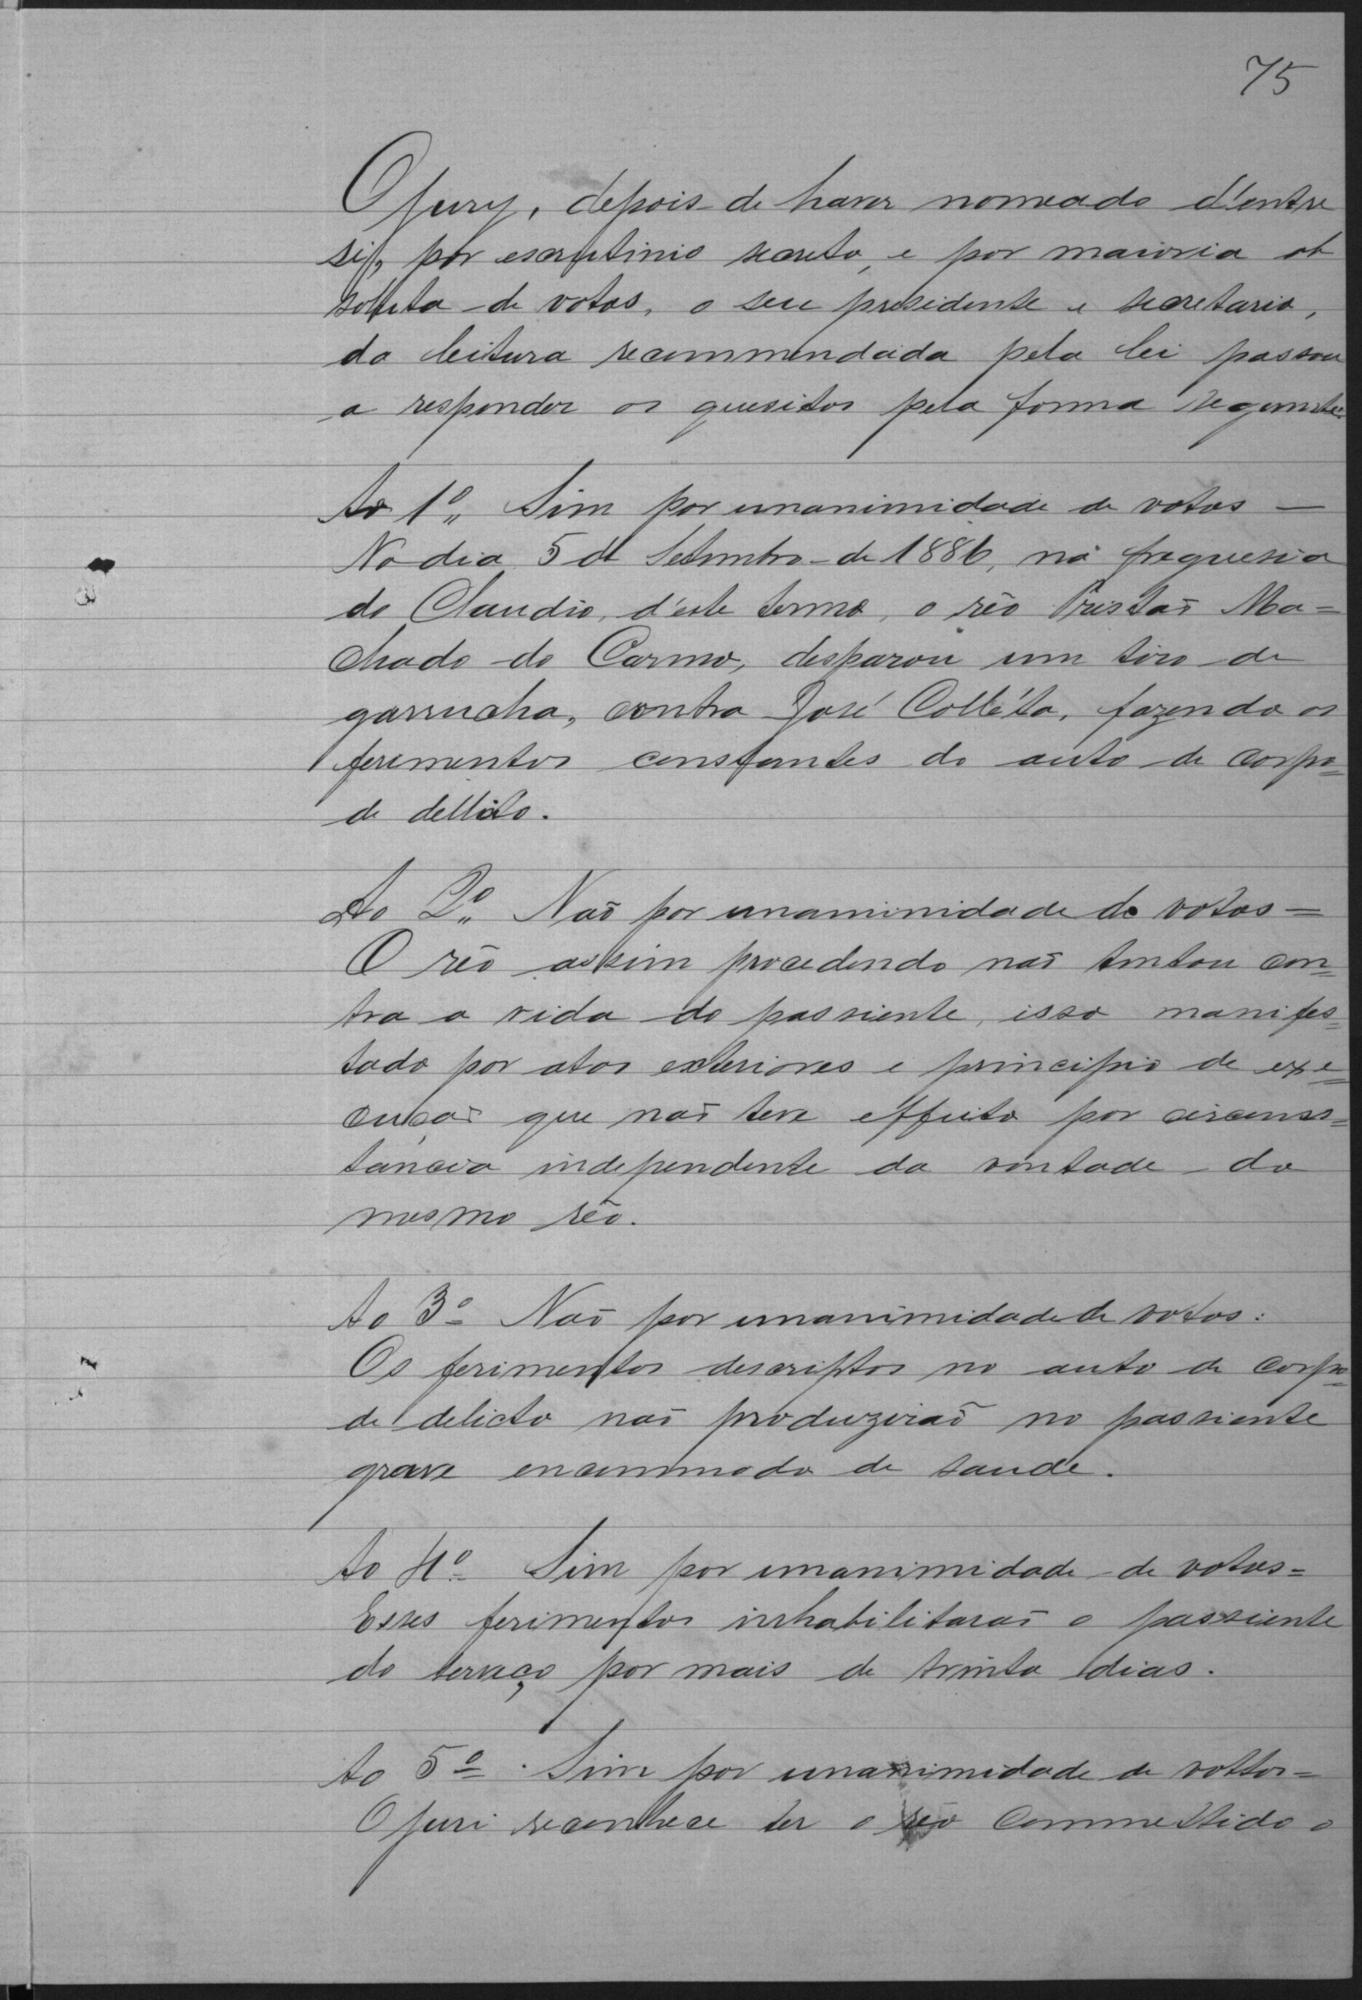 75
O jury, depois de haver nomeado d'entre
si, por escrutinio secreto, e por maioria ab
soluta de votos, o seu presidente e secretario,
da leitura recommendada pela lei passou
a responder os quesitos pela forma seguinte:
Ao 1º,, Sim por unanimidade de votos —
No dia 5 de Setembro de 1886, na freguesia
do Claudio, d'este termo, o réo Tristaõ Ma=
chado do Carmo, desparou um tiro de
garrucha, contra José Colléta, fazendo os
ferimentos constantes do auto de corpo=
de dellito.
Ao 2º,, Naõ por unanimidade de votos =
O réo assim procedendo naõ tentou con=
tra a vida do passiente, isso manifes=
tado por atos exteriores e principio de exe=
cuçaõ que naõ teve effeito por circuns=
tancia independente da vontade do
mesmo réo.
Ao 3º Naõ por unanimidade de votos:
Os ferimentos descriptos no auto de corpo=
de delicto naõ produziraõ no passiente
grave encommodo de saude.
Ao 4º Sim por unanimidade de votos=
Esses ferimentos inhabilitaraõ o passiente
do serviço por mais de trinta dias.
Ao 5º Sim por unanimidade de vottos=
O juri reconhece ter o réo commettido o